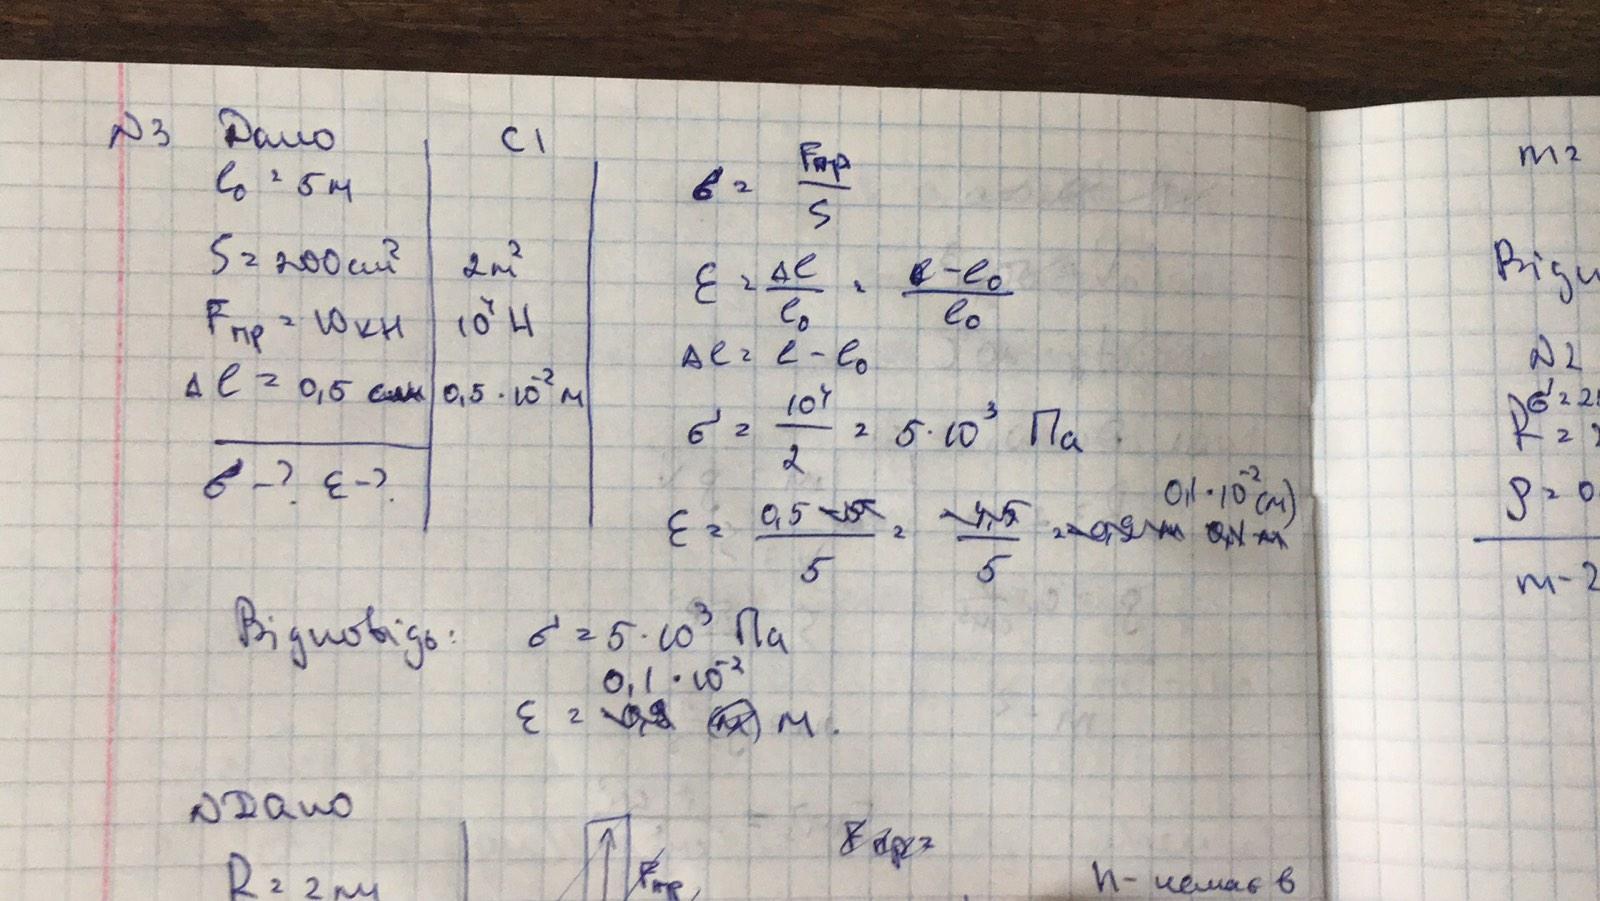 N3 Дано СІ
l₀ = 5м
S = 200см² 2м²
Fпр = 10кН 10⁴ Н
Δl = 0,5 см 0,5·10⁻² м
σ -? ε -?
σ = Fпр / S
ε = Δl / l₀ = l - l₀ / l₀
Δl = l - l₀
σ = 10⁴ / 2 = 5·10³ Па
0,1·10⁻² (м)
ε = 0,5 - 5 / 5 = -4,5 / 5 =
Відповідь: σ = 5·10³ Па
0,1·10⁻²
ε = м.
N Дано
R = 2
Fпр
Fпр =
h - немає в
m =
Відп
N2
σ = 2
R =
ρ = 0
m - ?